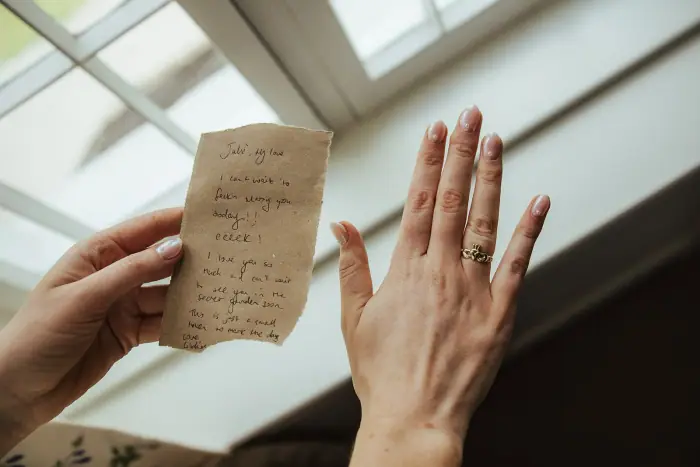 my love
I can't wait to
fuckin marry you
today!!
eeeek!
I love you so
much and can't wait
to see you in the
secret garden soon
This is just a small
token to mark the day
Love